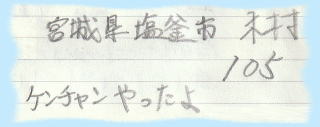 宮城県塩釜市 木村
105
ケンチャンやったよ